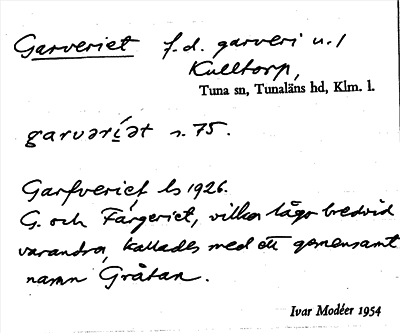 Garveriet f.d. garveri u. /
Kulltorp,
Tuna sn, Tunaläns hd, Klm. l.
garvərí̱ət s. 75.
Garfveriet ls 1926.
G. och Färgeriet, vilka lågo bredvid
varandra, kallades med ett gemensamt
namn Gråtan.
Ivar Modéer 1954